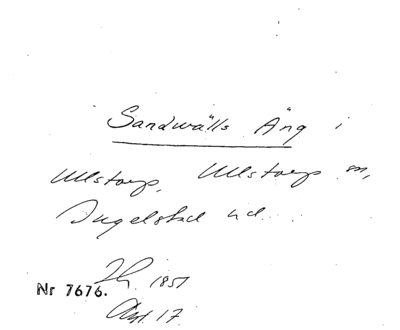 Sandwalls Äng i
Ullstorp, Ullstorp sn,
Ingelstad hd.
1851
Nr 7676.
Akt. 17.